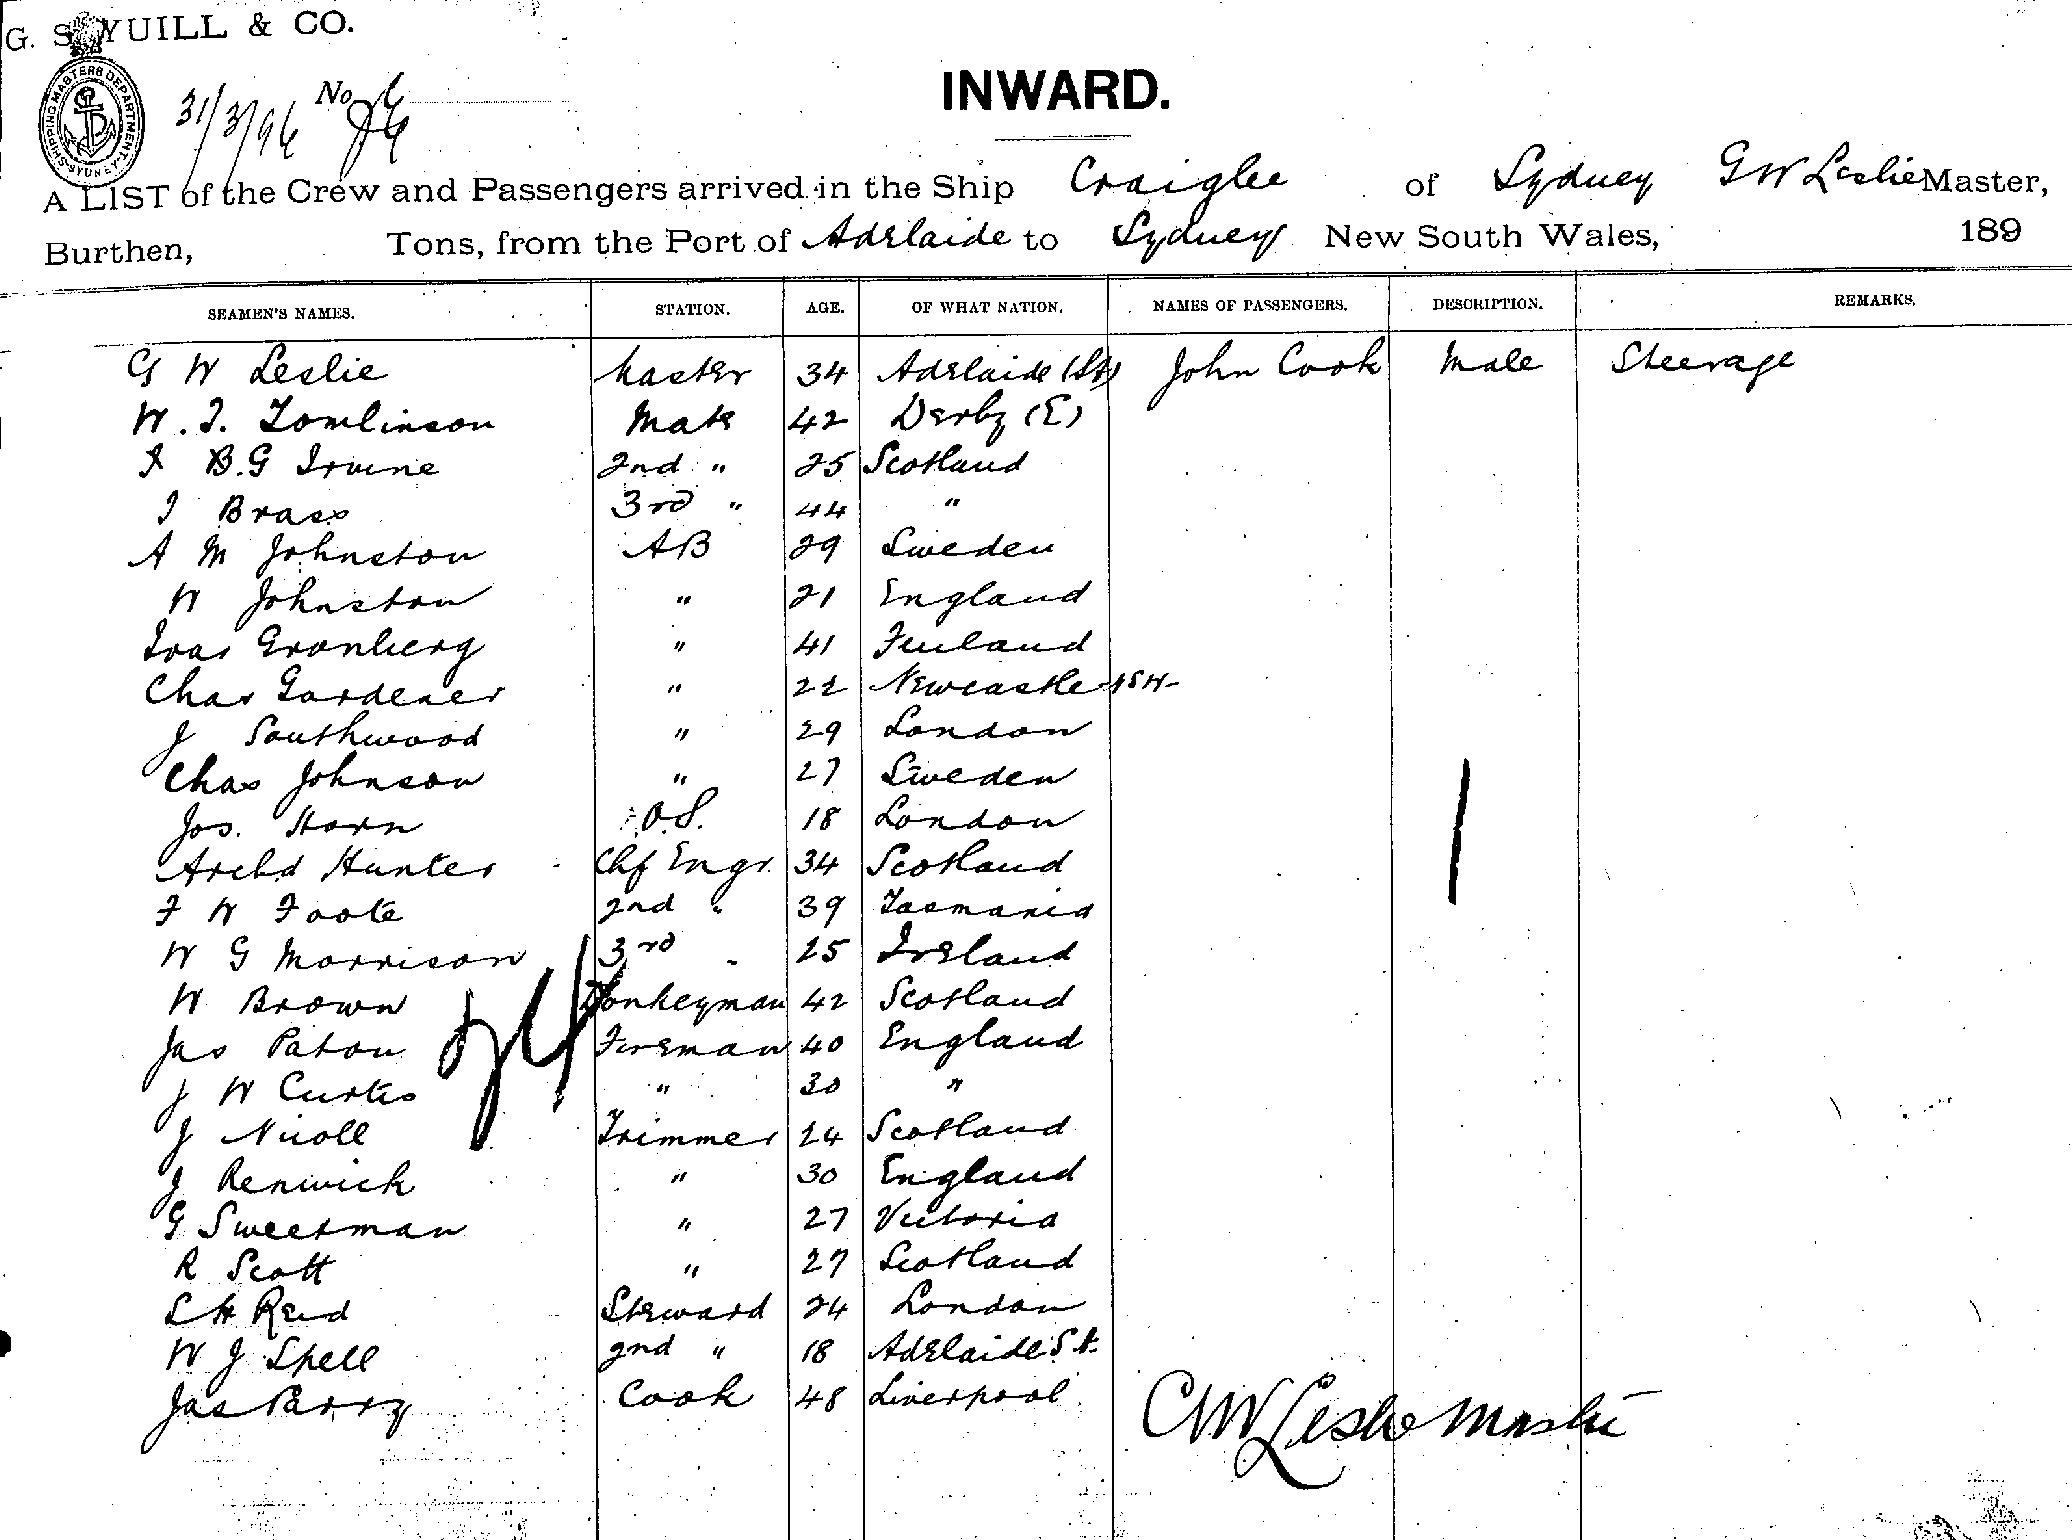 G. S. YUILL & CO.
SHIPPING MASTERS DEPARTMENT SYDNEY
31/3/96 No
INWARD.
A LIST of the Crew and Passengers arrived in the Ship Craiglee of Sydney G W Leslie Master,
Burthen, Tons, from the Port of Adelaide to Sydney New South Wales, 189
SEAMEN'S NAMES. STATION. AGE. OF WHAT NATION. NAMES OF PASSENGERS. DESCRIPTION. REMARKS.
G W Leslie Master 34 Adelaide (SA) John Cook Male Steerage
W. T. Tomlinson Mate 42 Derby (E)
B.G Irvine 2nd " 25 Scotland
J Brass 3rd " 44 "
A M Johnston AB 29 Sweden
W Johnston " 21 England
Ivar Gronberg " 41 Finland
Chas Gardener " 22 Newcastle NSW
J Southwood " 29 London
Chas Johnson " 27 Sweden
Jos. Horn O.S. 18 London
Archd Hunter Chf Engr. 34 Scotland
F W Foote 2nd " 39 Tasmania
W G Morrison 3rd " 25 Ireland
W Brown Donkeyman 42 Scotland
Jas Paton Fireman 40 England
J W Curtis " 30 "
J Nicoll Trimmer 24 Scotland
J Renwick " 30 England
G Sweetman " 27 Victoria
R Scott " 27 Scotland
L H Reid Steward 24 London
W J Spell 2nd " 18 Adelaide S A.
Jas Parry Cook 48 Liverpool
24
1
GW Leslie Master